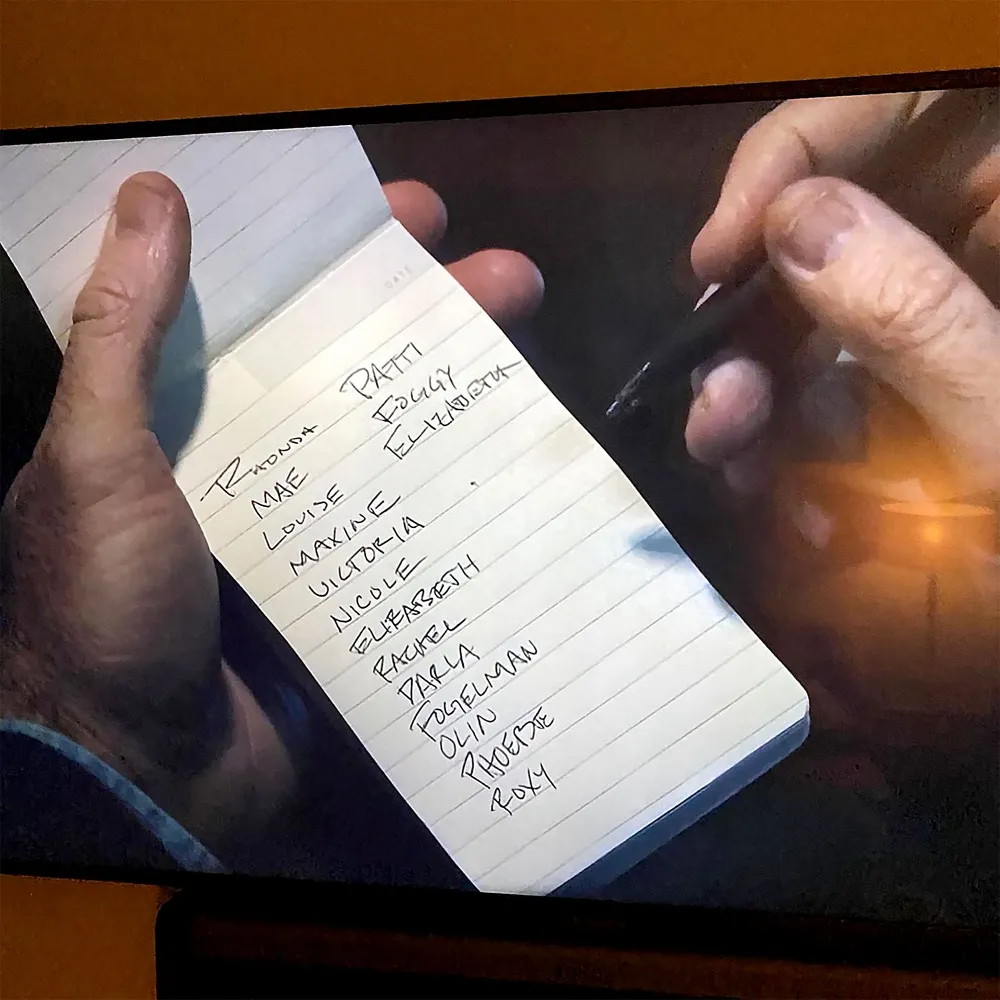 DATE
PATTI
FOGGY
ELIZABETH
RHONDA
MAE
LOUISE
MAXINE
VICTORIA
NICOLE
ELIZABETH
RACHEL
DARLA
FOGELMAN
OLIN
PHOEBE
ROXY